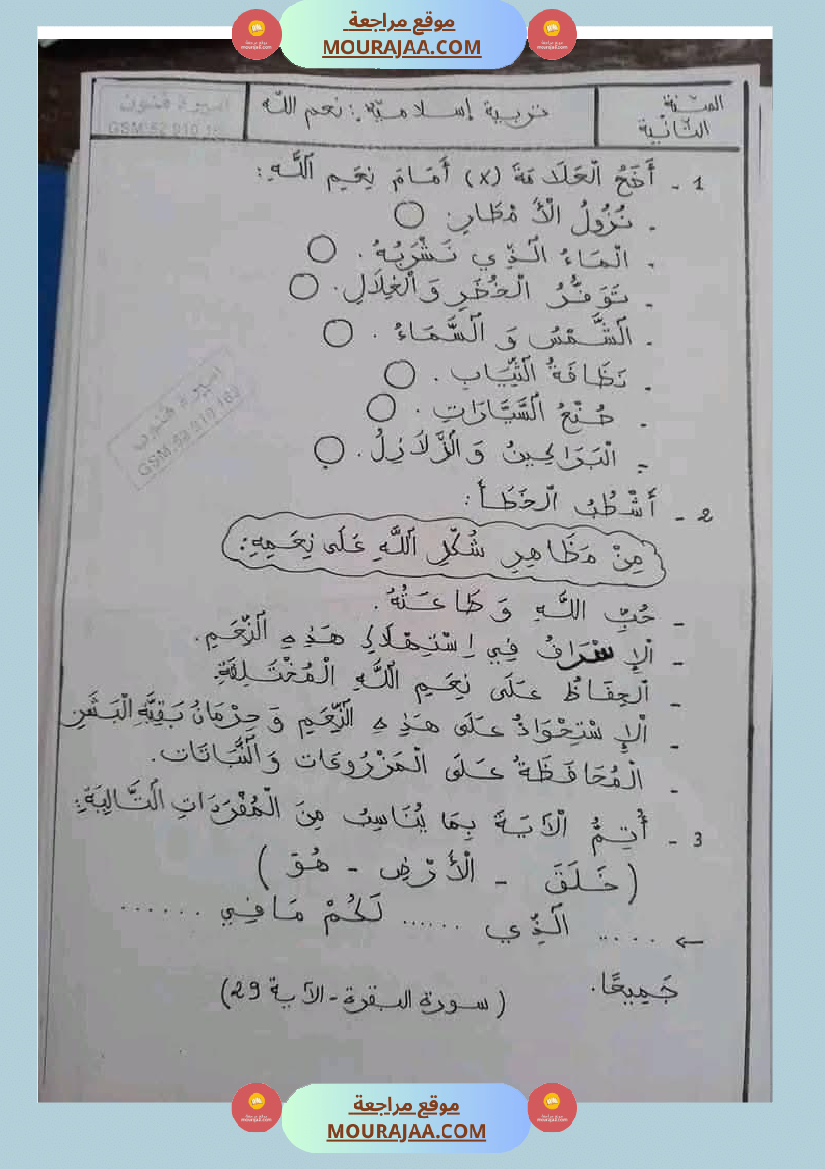 موقع مراجعة
MOURAJAA.COM
السنة الثانية
تربية إسلامية: نعم الله
أميرة فنون
GSM:52 919 16
1 - أَضَعُ الْعَلَامَةَ (x) أَمَامَ نِعَمِ اللَّهِ:
. نُزُولُ الْأَمْطَارِ.
. الْمَاءُ الَّذِي نَشْرَبُهُ.
. تَوَفُّرُ الْخُضَرِ وَالْغِلَالِ.
. الشَّمْسُ وَ السَّمَاءُ.
. نَظَافَةُ الثِّيَابِ.
. صُنْعُ السَّيَّارَاتِ.
. الْبَرَاكِينُ وَالزَّلَازِلُ.
2 - أَشْطُبُ الْخَطَأَ:
مِنْ مَظَاهِرِ شُكْرِ اللَّهِ عَلَى نِعَمِهِ:
- حُبِّ اللَّهِ وَ طَاعَتُهُ.
- الْإِسْرَافُ فِي اِسْتِهْلَاكِ هَذِهِ النِّعَمِ.
- الْحِفَاظُ عَلَى نِعَمِ اللَّهِ الْمُخْتَلِفَةِ.
- الْإِسْتِحْوَاذُ عَلَى هَذِهِ النِّعَمِ وَ حِرْمَانُ بَقِيَّةِ الْبَشَرِ
- الْمُحَافَظَةُ عَلَى الْمَزْرُوعَات وَ النَّبَاتَات.
3 - أُتِمُّ الْآيَةَ بِمَا يُنَاسِبُ مِنَ الْمُفْرَدَاتِ التَّالِيَةِ:
(خَلَقَ - الْأَرْضِ - هُوَ)
← ..... الَّذِي ...... لَكُمْ مَا فِي ......
جَمِيعًا.
(سورة البقرة - الآية 29)
موقع مراجعة
MOURAJAA.COM